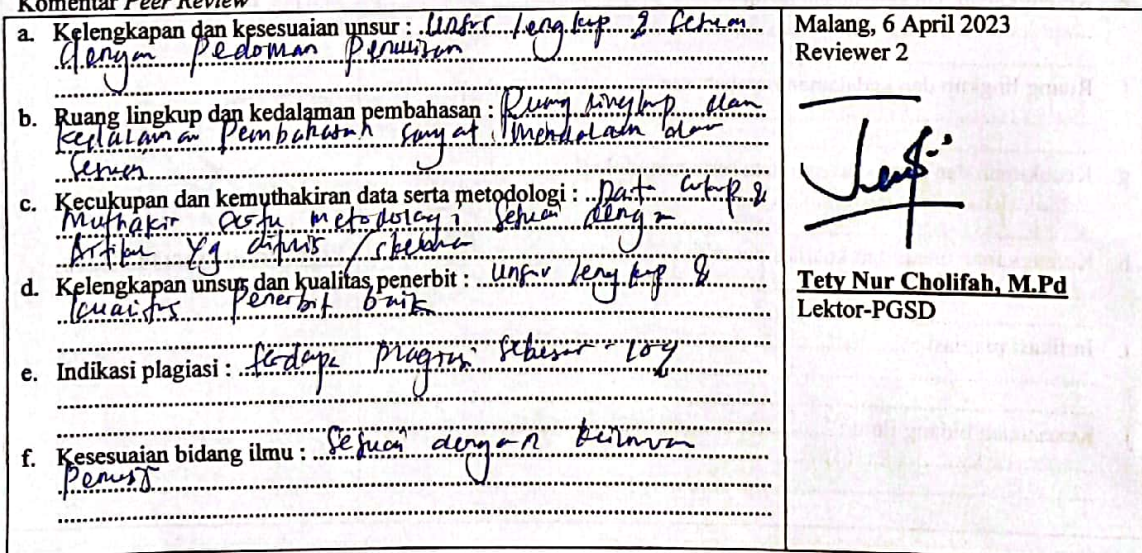 Komentar Peer Review
a. Kelengkapan dan kesesuaian unsur : Unsur lengkap & sesuai
dengan Pedoman Penulisan
b. Ruang lingkup dan kedalaman pembahasan : Ruang lingkup dan
kedalaman Pembahasan sangat mendalam dan
sesuai
c. Kecukupan dan kemuthakiran data serta metodologi : Data cukup &
Muthakir serta metodologi sesuai dengan
Artikel yg ditulis
d. Kelengkapan unsur dan kualitas penerbit : Unsur lengkap &
kualitas Penerbit baik
e. Indikasi plagiasi : terdapat plagiasi sebesar
f. Kesesuaian bidang ilmu : Sesuai dengan
Penulis
Malang, 6 April 2023
Reviewer 2
Tety Nur Cholifah, M.Pd
Lektor-PGSD